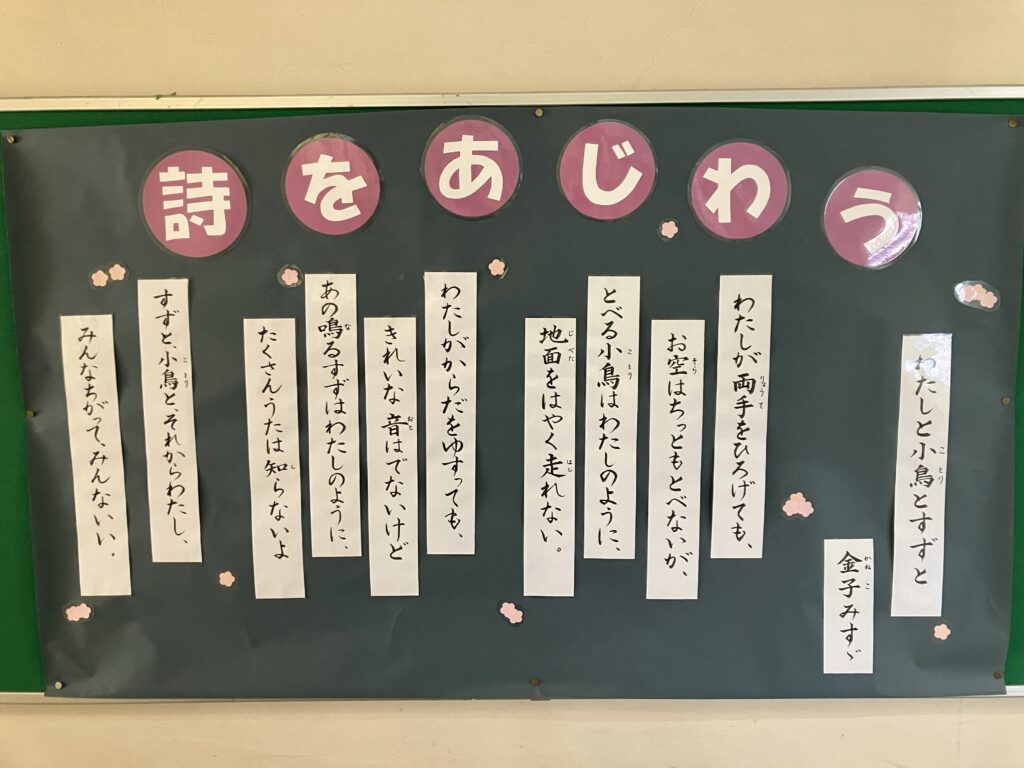 詩をあじわう
わたしと小鳥とすずと
金子みすゞ
わたしが両手をひろげても、
お空はちっともとべないが、
とべる小鳥はわたしのように、
地面をはやく走れない。
わたしがからだをゆすっても、
きれいな音はでないけど
あの鳴るすずはわたしのように、
たくさんうたは知らないよ
すずと、小鳥とそれからわたし、
みんなちがって、みんないい.